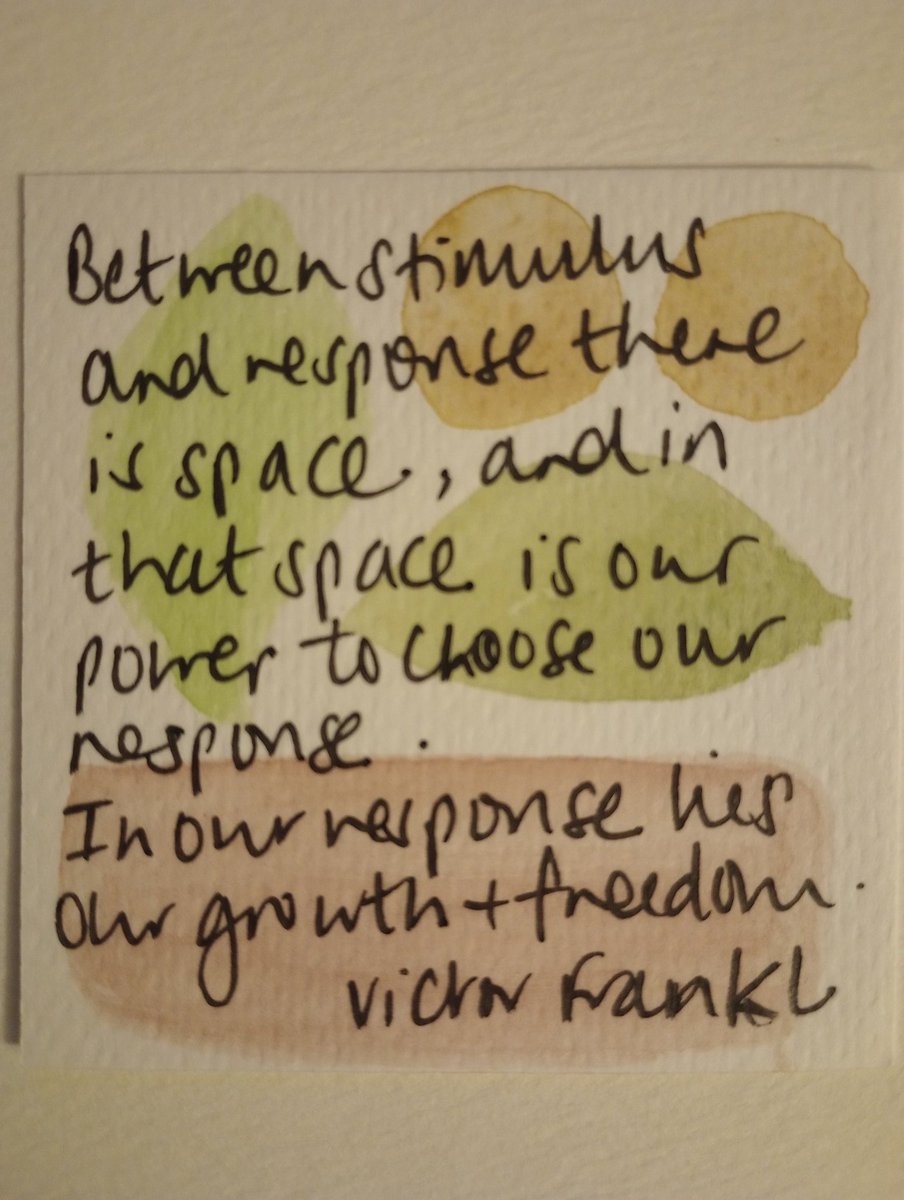 Between stimulus
and response there
is space, and in
that space is our
power to choose our
response.
In our response lies
our growth + freedom.
Victor Frankl